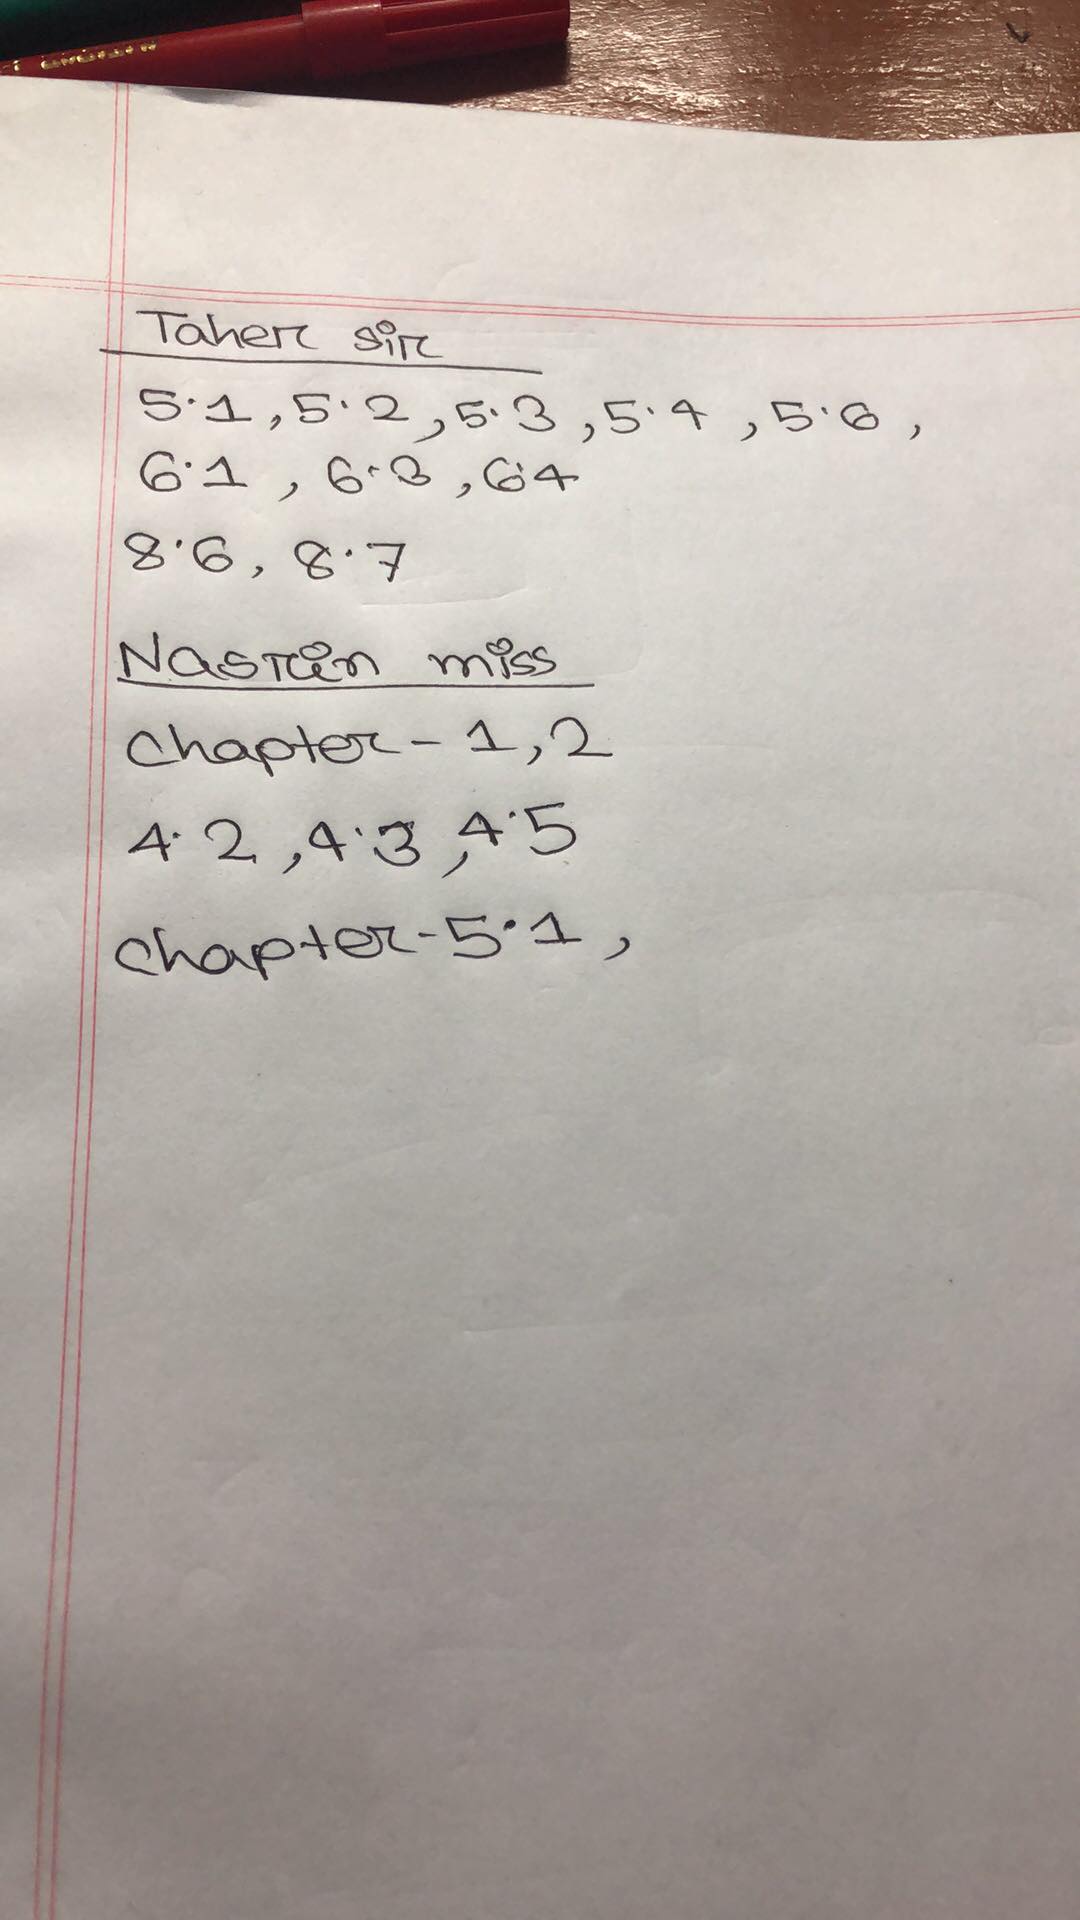 Taher sir
5.1, 5.2, 5.3, 5.4, 5.6,
6.1, 6.3, 6.4
8.6, 8.7
Nasrin miss
Chapter - 1, 2
4.2, 4.3, 4.5
Chapter - 5.1,